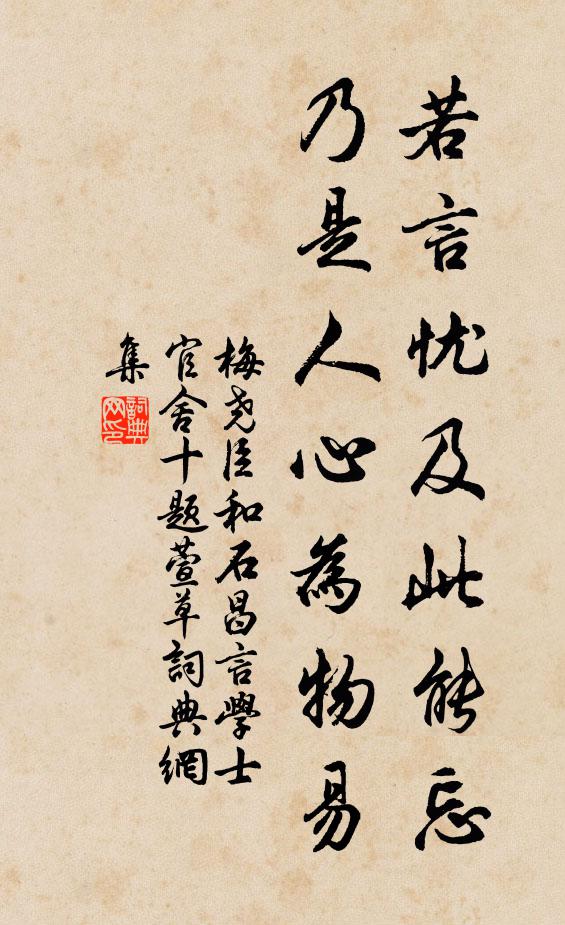 若言忧及此能忘
乃是人心為物易
梅尧臣和石昌言學士
官舍十題萱草詞典網
集
詞典
网印